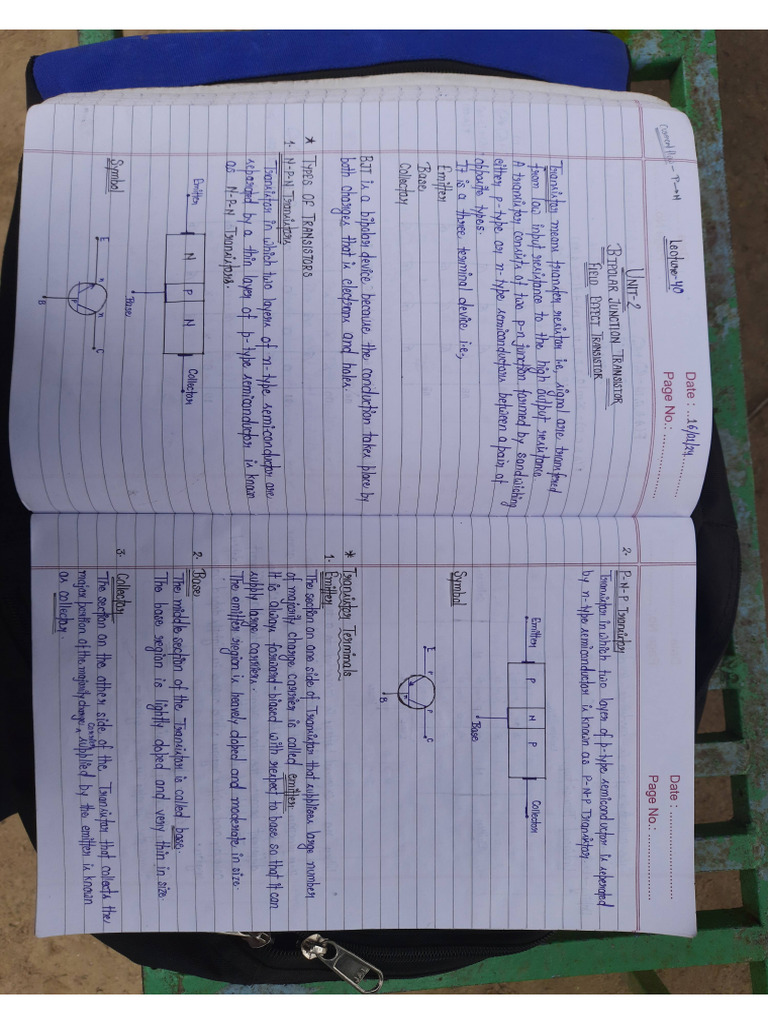 Current flow - P→N
Lecture-40
Date : ...16/01/24..........
Page No.: ..................
UNIT-2
BIPOLAR JUNCTION TRANSISTOR
FIELD EFFECT TRANSISTOR
Transistor means transfer resistor i.e, signal are transfered
from low input resistance to the high output resistance.
A transistor consists of two p-n junction formed by sandwishing
either p-type or n-type semiconductors between a pair of
opposite types.
It is a three terminal device i.e,
Emitter
Base
Collector
BJT is a bipolar device because the conduction takes place by
both charges that is electron and holes.
* TYPES OF TRANSISTORS
1. N-P-N Transistors
Transistor in which two layers of n-type semiconductor are
seperated by a thin layer of p-type semiconductor is known
as N-P-N Transistors.
Emitter N P N Collector
Base
Symbol
E n P n C
B
Date : ..................
Page No.: ..................
2. P-N-P Transistor
Transistor in which two layer of p-type semiconductor is seperated
by n-type semiconductor is known as P-N-P Transistor
Emitter P N P Collector
Base
Symbol
E P N P C
B
* Transistor Terminals
1. Emitter
The section on one side of Transistor that suppliees large number
of majority charge carrier is called emitter.
It is always forward-biased with respect to base so that it can
supply large carriers.
The emitter region is heavely doped and moderate in size.
2. Base
The middle section of the Transistor is called base.
The base region is lightly doped and very thin in size.
3. Collector
The section on the other side of the Transistor that collects the
major portion of the majority charge carrier supplied by the emitter is known
as collector.